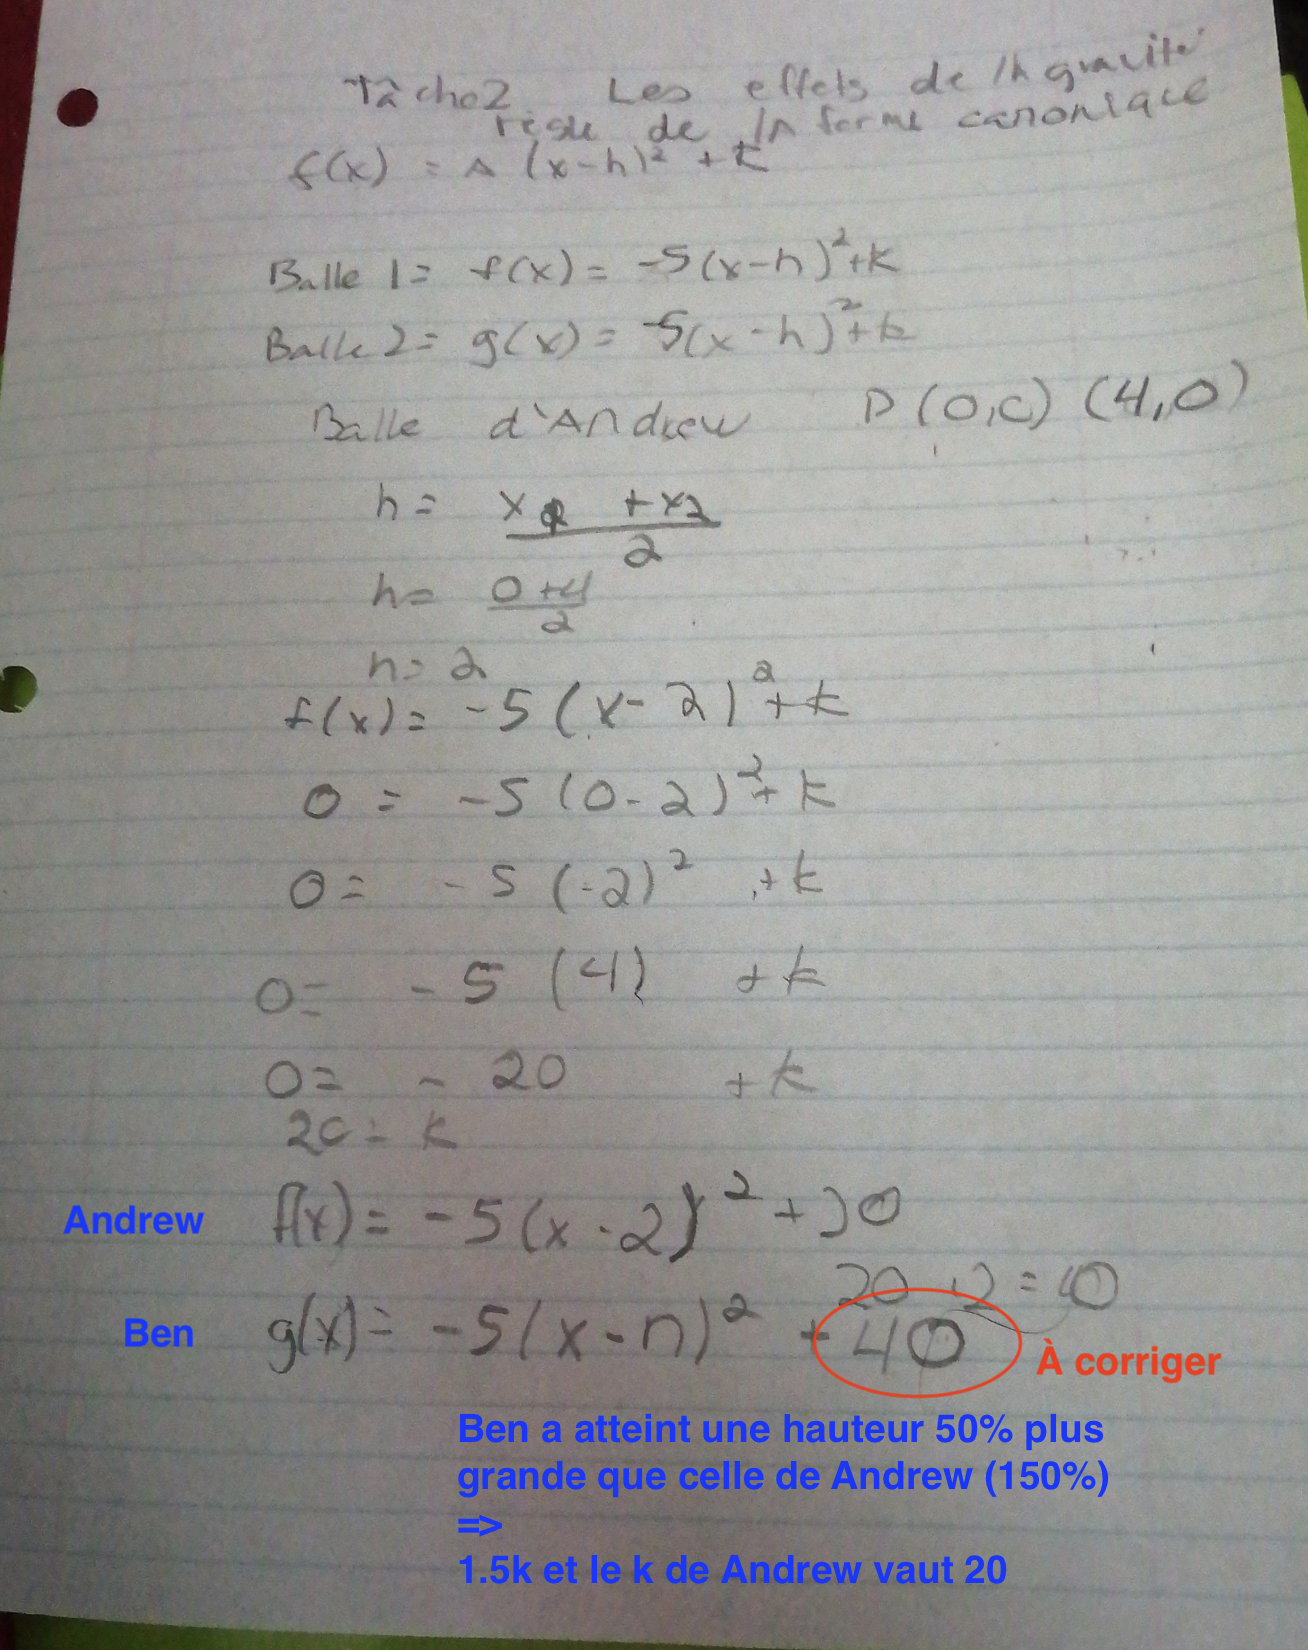 Tâche 2 Les effets de la gravité
règle de la forme canonique
f(x) = A (x-h)² + k
Balle 1 = f(x) = -5(x-h)²+k
Balle 2 = g(x) = -5(x-h)²+k
Balle d'Andrew P (0,0) (4,0)
h = x + x2
2
h = 0+4
2
h = 2
f(x) = -5(x-2)²+k
0 = -5(0-2)²+k
0 = -5(-2)² + k
0 = -5(4) + k
0 = -20 + k
20 = k
Andrew f(x) = -5(x-2)² + 20
20 2 = 40
Ben g(x) = -5(x-h)² + 40
À corriger
Ben a atteint une hauteur 50% plus
grande que celle de Andrew (150%)
=>
1.5k et le k de Andrew vaut 20